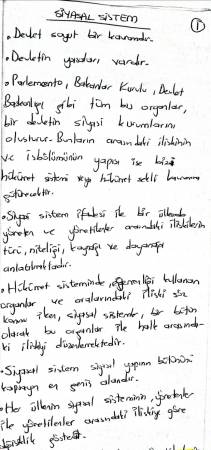 SİYASAL SİSTEM
①
• Devlet soyut bir kavramdır.
• Devletin yasaları vardır.
• Parlemento, Bakanlar Kurulu, Devlet
Başkanlığı gibi tüm bu organlar,
bir devletin siyasi kurumlarını
oluşturur. Bunların arasındaki ilişkinin
ve işbölümünün yapısı ise bizi
hükümet sistemi veya hükümet şekli kavramına
götürecektir.
• Siyasi sistem ifadesi ile bir ülkede
yöneten ve yönetilenler arasındaki ilişkilerin
türü, niteliği, kaynağı ve dayanağı
anlatılmaktadır.
• Hükümet sisteminde, egemenliği kullanan
organlar ve aralarındaki ilişki söz
konusu iken, siyasal sistemde, bir bütün
olarak bu organlar ile halk arasında-
ki ilişkiyi düzenlemektedir.
• Siyasal sistem siyasal yapının bütününü
kapsayan en geniş alandır.
• Her ülkenin siyasal sisteminin, yönetenler
ile yönetilenler arasındaki ilişkiye göre
gösterir.